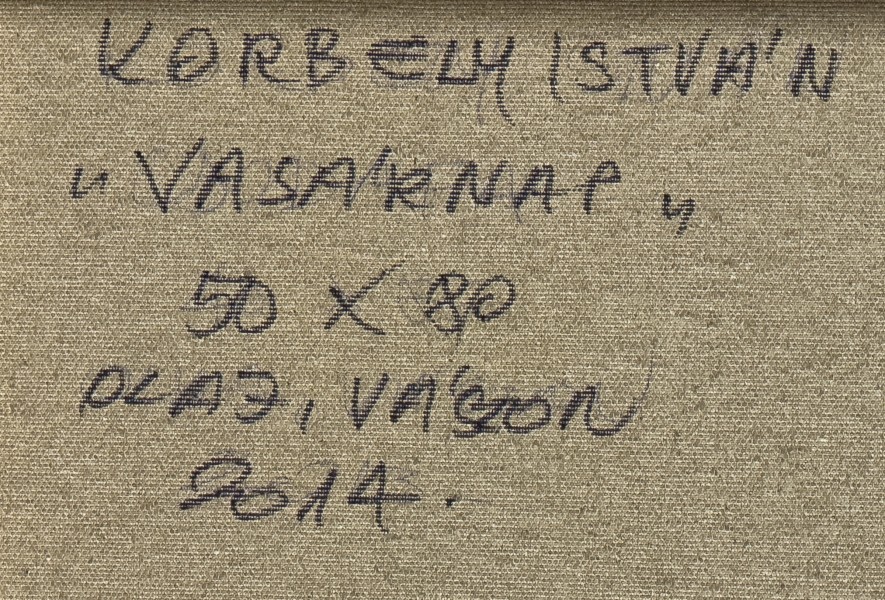 KORBELY ISTVÁN
"VASÁRNAP"
50 X 80
OLAJ, VÁSZON
2014.